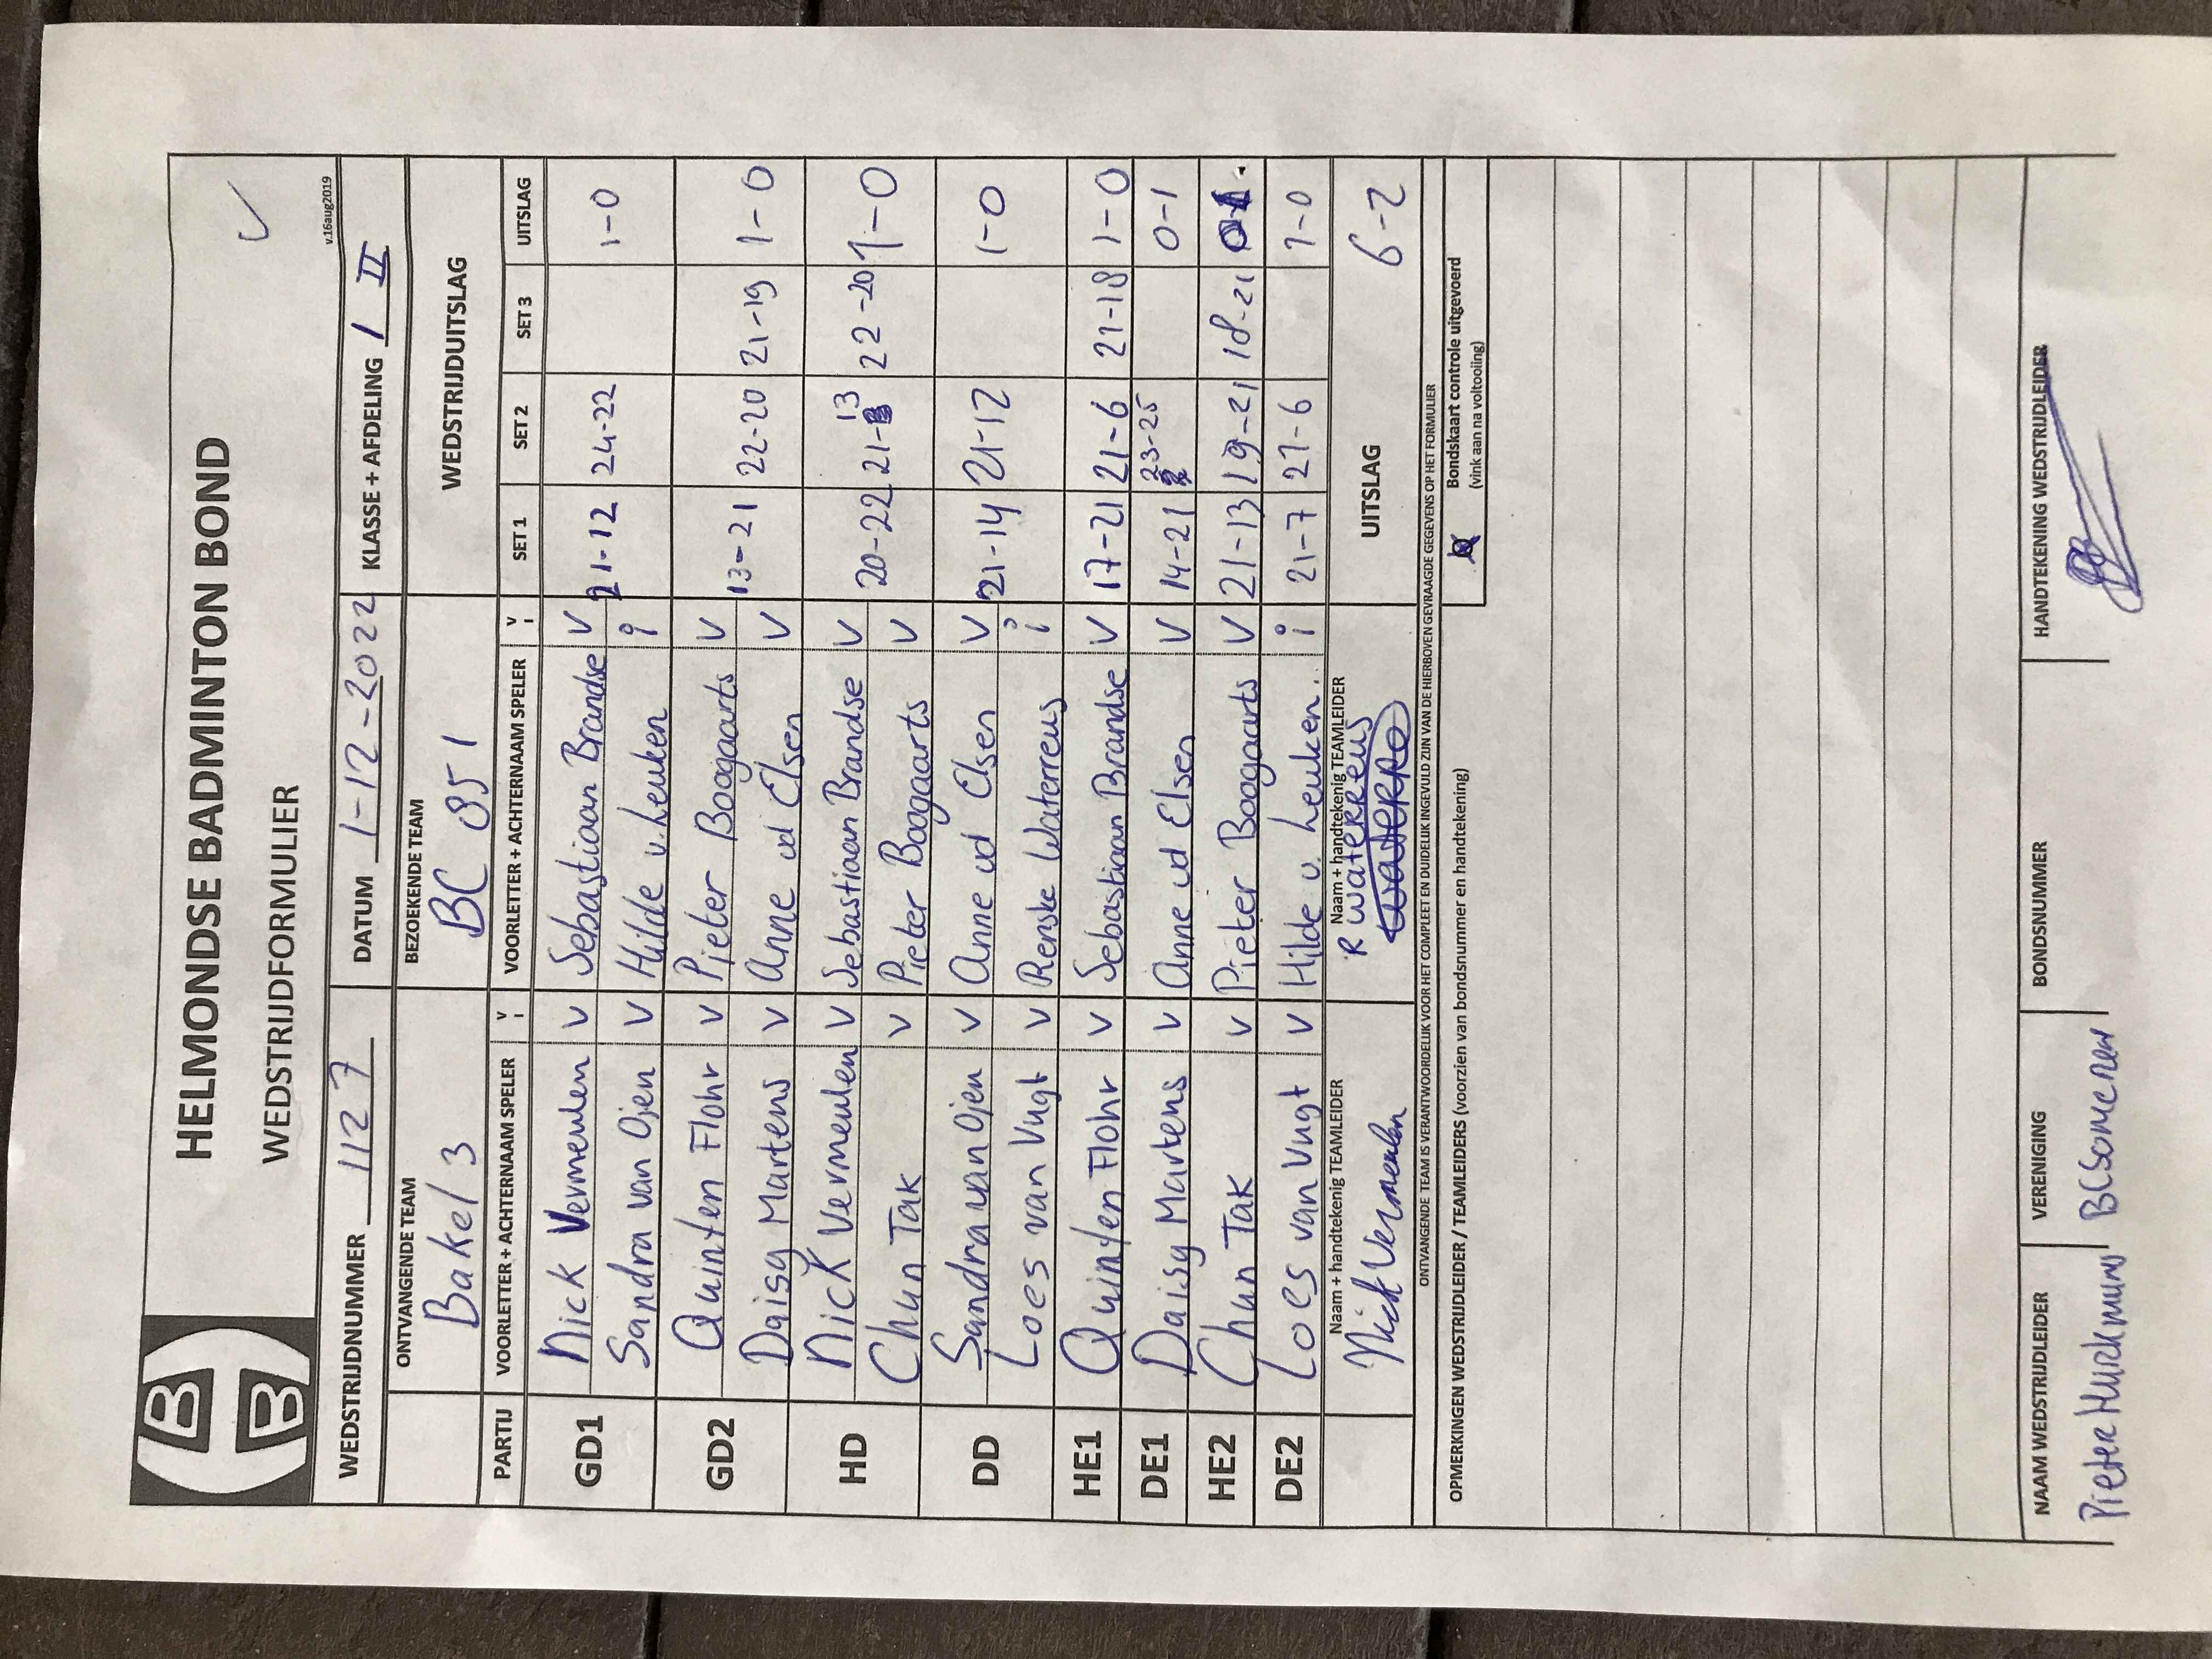 HELMONDSE BADMINTON BOND
WEDSTRIJDFORMULIER
v.16aug2019
WEDSTRIJDNUMMER 1127 DATUM 1-12-2022 KLASSE + AFDELING 1 II
ONTVANGENDE TEAM BEZOEKENDE TEAM WEDSTRIJDUITSLAG
Bakel 3 BC 85 1
PARTIJ VOORLETTER + ACHTERNAAM SPELER V I VOORLETTER + ACHTERNAAM SPELER V I SET 1 SET 2 SET 3 UITSLAG
GD1 Nick Vermeulen V Sebastiaan Brandse V 21-12 24-22 1-0
Sandra van Ojen V Hilde v. Leuken i
GD2 Quinten Flohr V Pieter Boogaarts V 13-21 22-20 21-19 1-0
Daisy Martens V Anne vd Elsen V
HD Nick Vermeulen V Sebastiaan Brandse V 20-22 21-13 22-20 1-0
Chun Tak V Pieter Boogaarts V
DD Sandra van Ojen V Anne vd Elsen V 21-14 21-12 1-0
Loes van Vugt V Renske Waterreus i
HE1 Quinten Flohr V Sebastiaan Brandse V 17-21 21-6 21-18 1-0
DE1 Daisy Martens V Anne vd Elsen V 14-21 23-25 0-1
HE2 Chun Tak V Pieter Boogaarts V 21-13 19-21 18-21 0-1
DE2 Loes van Vugt V Hilde v. Leuken. i 21-7 21-6 1-0
Naam + handtekenig TEAMLEIDER Naam + handtekenig TEAMLEIDER UITSLAG 6-2
Nick Vermeulen R Waterreus
ONTVANGENDE TEAM IS VERANTWOORDELIJK VOOR HET COMPLEET EN DUIDELIJK INGEVULD ZIJN VAN DE HIERBOVEN GEVRAAGDE GEGEVENS OP HET FORMULIER
OPMERKINGEN WEDSTRIJDLEIDER / TEAMLEIDERS (voorzien van bondsnummer en handtekening)
Bondskaart controle uitgevoerd
(vink aan na voltooiing)
NAAM WEDSTRIJDLEIDER VERENIGING BONDSNUMMER HANDTEKENING WEDSTRIJDLEIDER
Pieter BC Someren